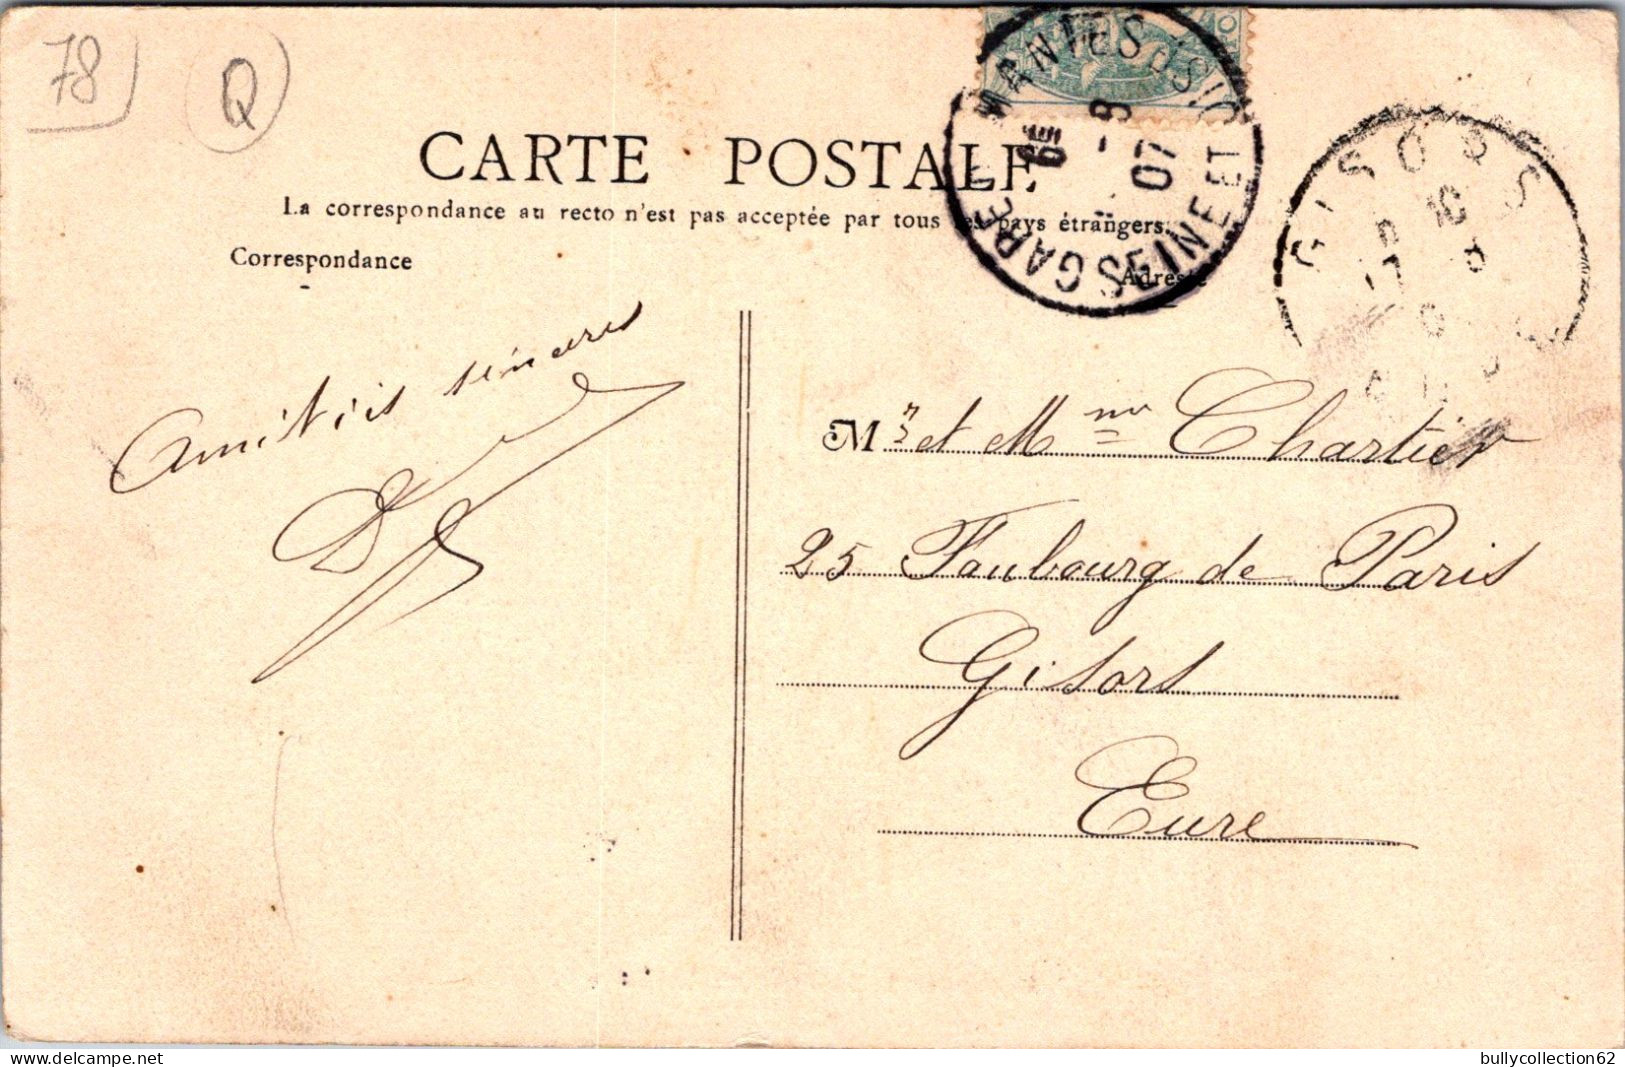 78
Q
CARTE POSTALE
La correspondance au recto n'est pas acceptée par tous les pays étrangers.
Correspondance
Adresse
MANTES
GARE
SEINE ET
07
GISORS
Amitiés sincères
Mr et Mme Chartier
25 Faubourg de Paris
Gisors
Eure
bullycollection62